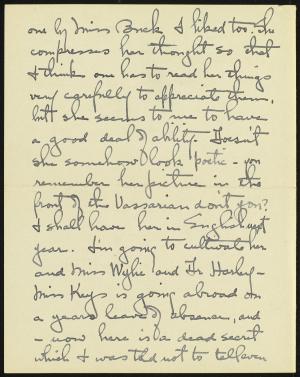 one by Miss Buck I liked too. She
compresses her thought so that
I think one has to read her things
very carefully to appreciate them,
but she seems to me to have
a good deal of ability. Doesn't
she somehow look poetic - you
remember her picture in the
front of the Vassarian don't you?
I shall have her in English next
year. I'm going to cultivate her
and Miss Wylie and Dr Harley -
Miss Keys is going abroad on
a years leave of absence, and
- now here is a dead secret
which I was told not to tell even